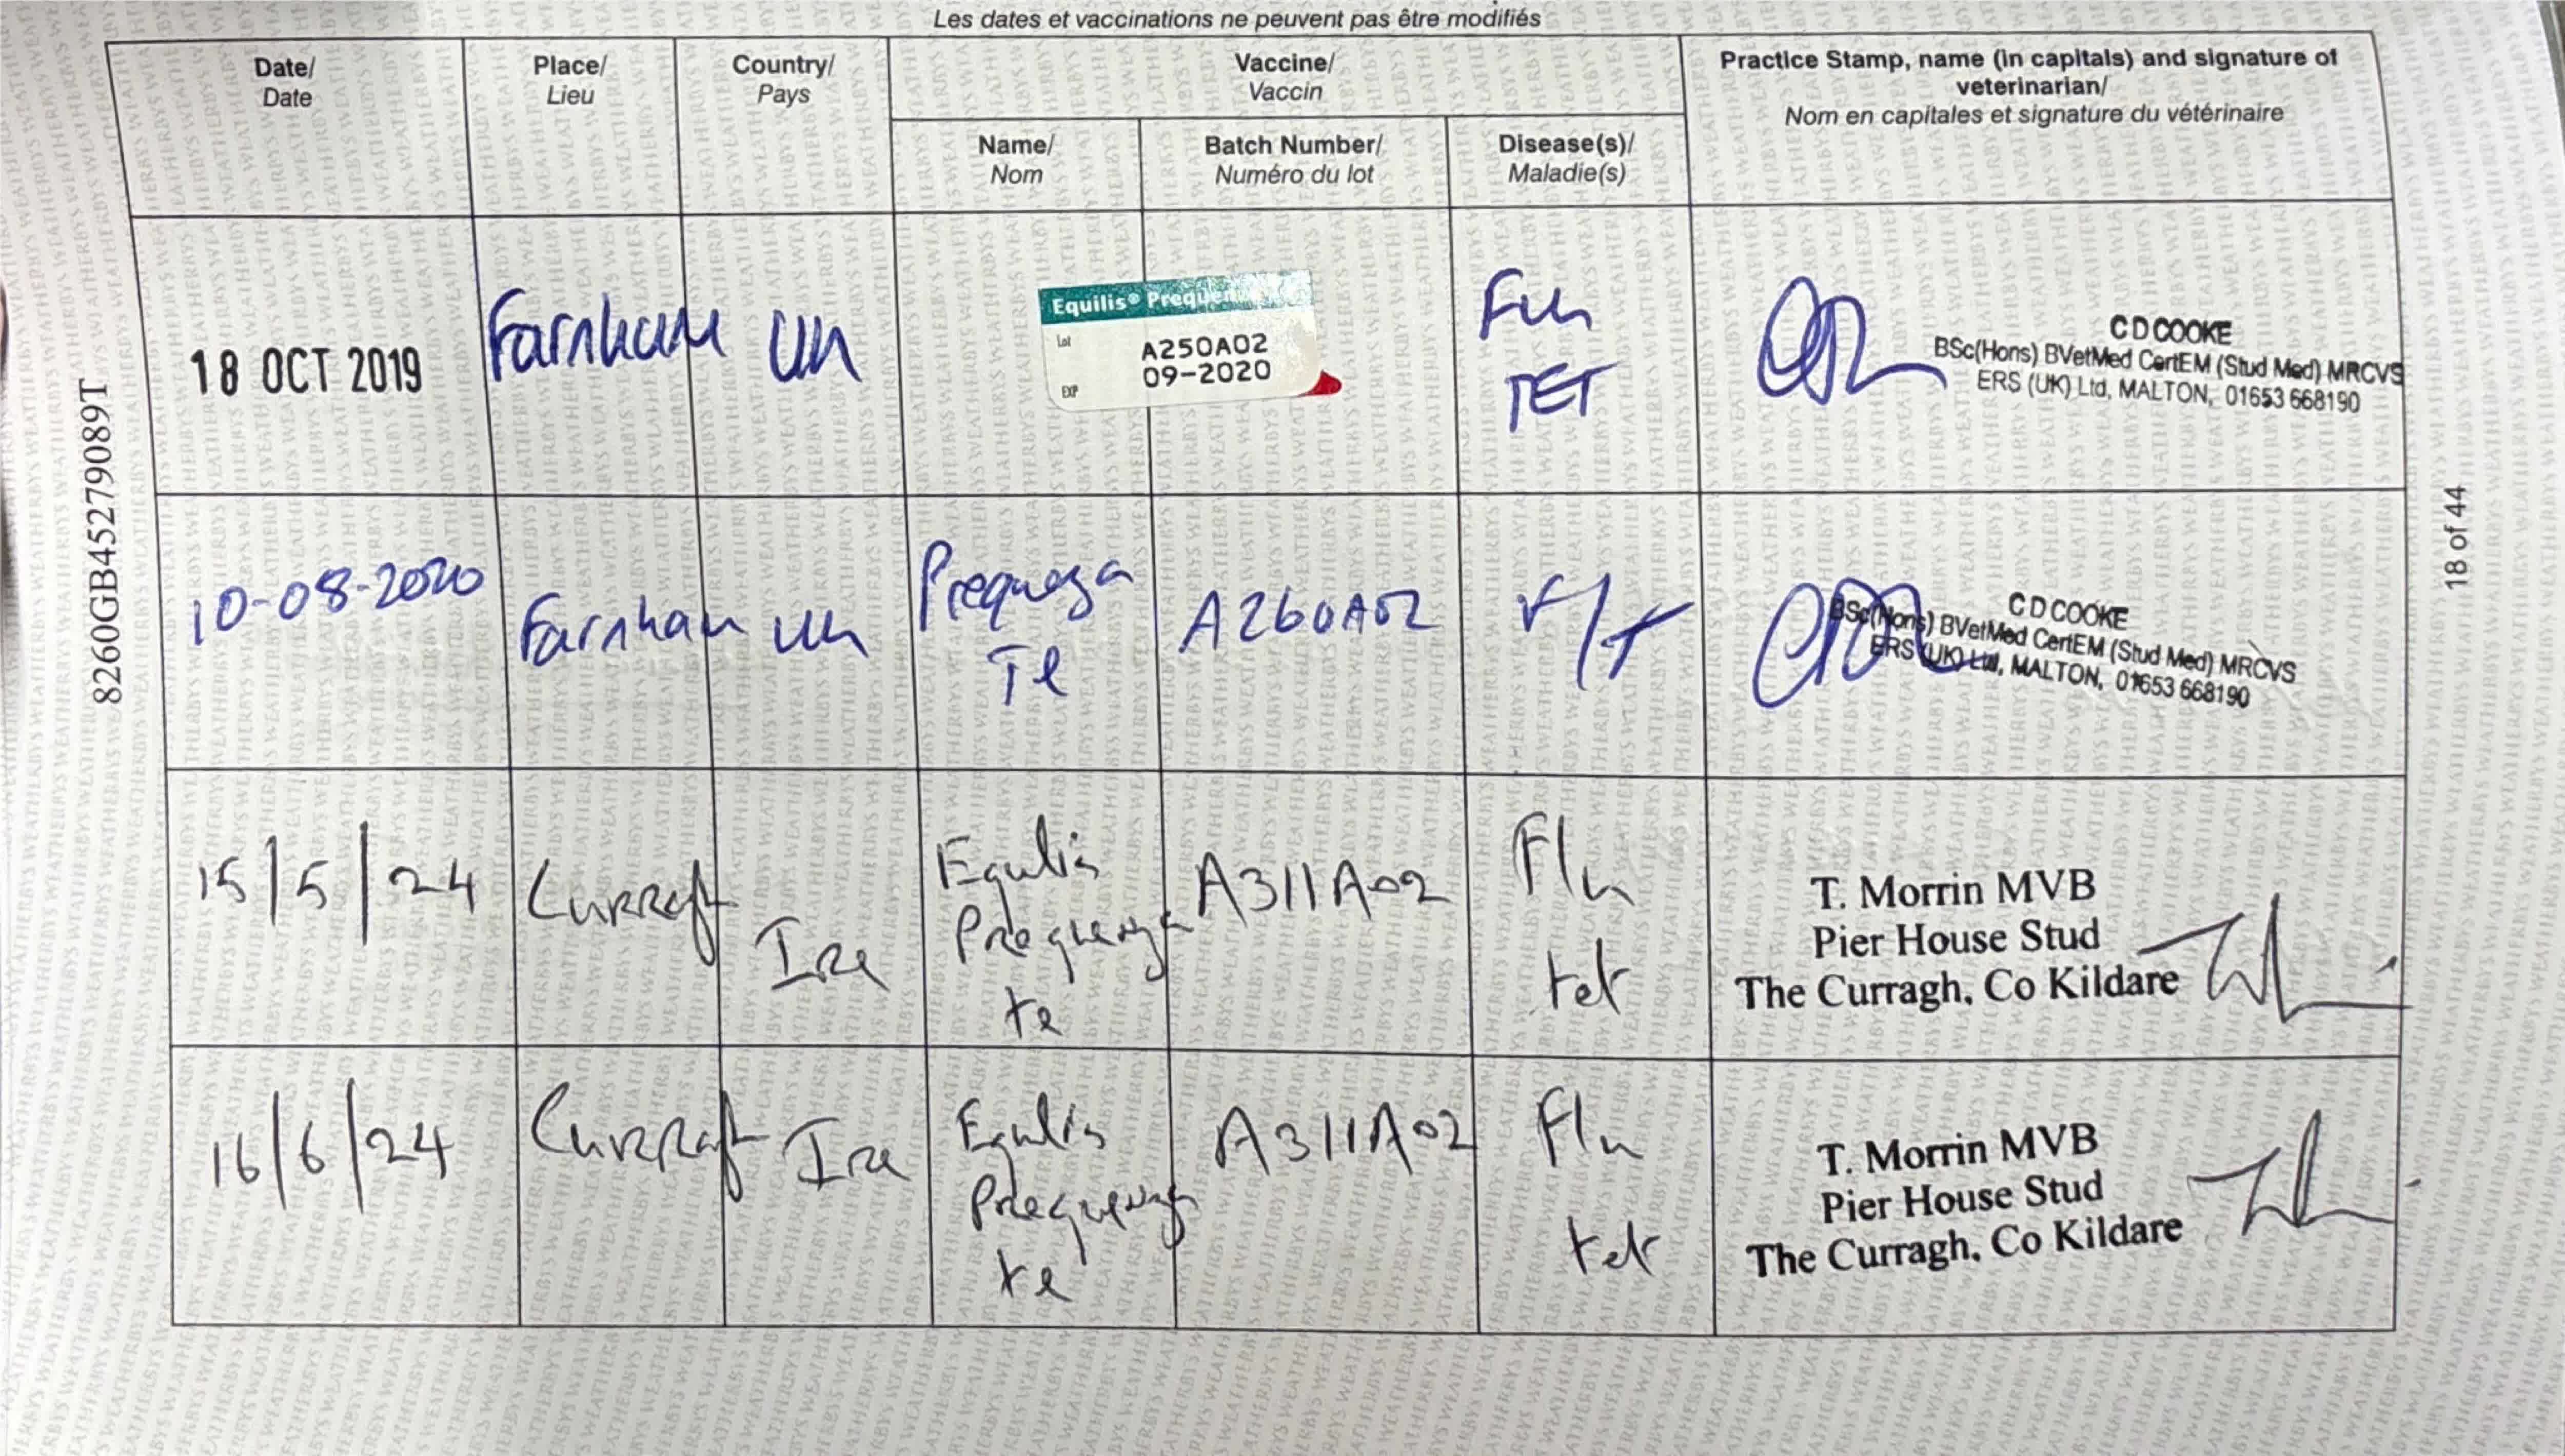 Les dates et vaccinations ne peuvent pas être modifiés
Date/
Date
Place/
Lieu
Country/
Pays
Vaccine/
Vaccin
Name/
Nom
Batch Number/
Numéro du lot
Disease(s)/
Maladie(s)
Practice Stamp, name (in capitals) and signature of
veterinarian/
Nom en capitales et signature du vétérinaire
18 OCT 2019
Farnham
UK
Equilis® Preque
Lot
A250A02
09-2020
EXP
Flu
TET
C D COOKE
BSc(Hons) BVetMed CertEM (Stud Med) MRCVS
ERS (UK) Ltd, MALTON, 01653 668190
10-08-2020
Farnham
UK
Prequenza
Te
A260A02
F/T
C D COOKE
BSc(Hons) BVetMed CertEM (Stud Med) MRCVS
ERS (UK) Ltd, MALTON, 01653 668190
15/5/24
Curragh
Ire
Equilis
Prequenza
te
A311A02
Flu
tet
T. Morrin MVB
Pier House Stud
The Curragh, Co Kildare
16/6/24
Curragh
Ire
Equilis
Prequenza
te
A311A02
Flu
tet
T. Morrin MVB
Pier House Stud
The Curragh, Co Kildare
8260GB45279089T
18 of 44
WEATHERBYS